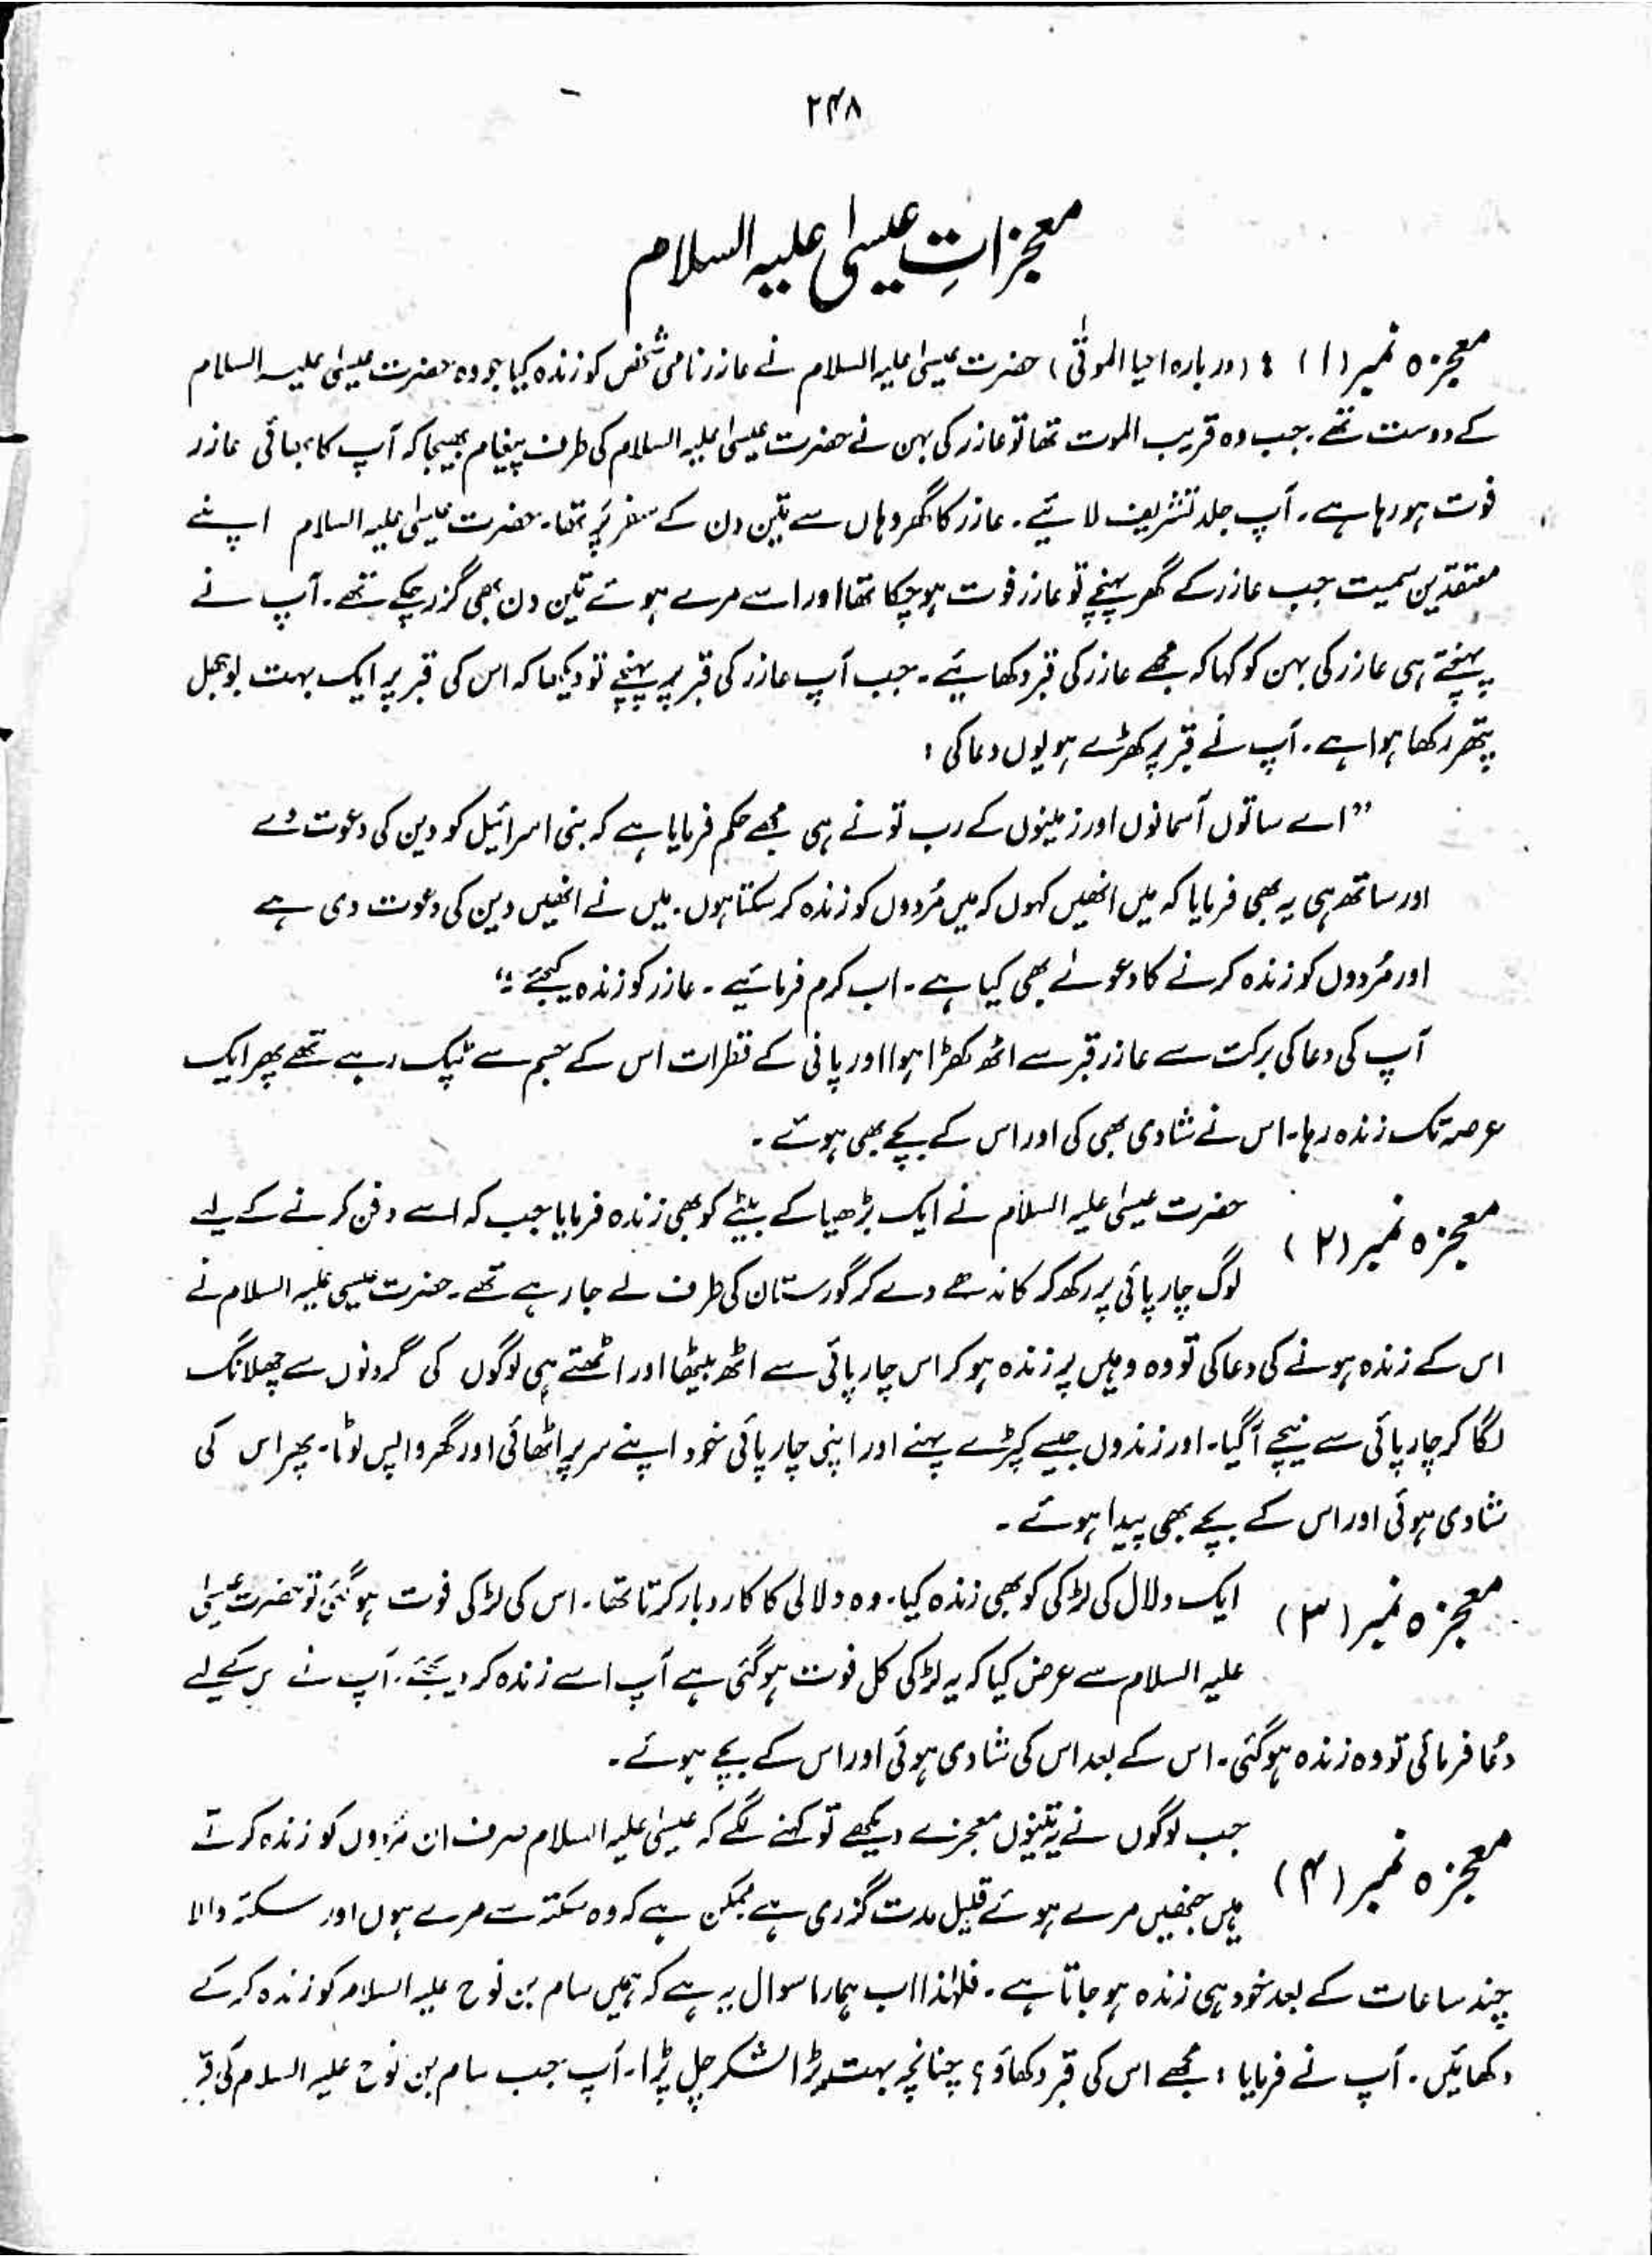 ۲۴۸
معجزاتِ عیسیٰ علیہ السلام
معجزہ نمبر (۱) : (دربارہ احیا الموتٰی) حضرت عیسیٰ علیہ السلام نے عازر نامی شخص کو زندہ کیا جو وہ حضرت عیسیٰ علیہ السلام
کے دوست تھے۔ جب وہ قریب الموت تھا تو عازر کی بہن نے حضرت عیسیٰ علیہ السلام کی طرف پیغام بھیجا کہ آپ کا بھائی عازر
فوت ہو رہا ہے۔ آپ جلد تشریف لائیے۔ عازر کا گھر وہاں سے تین دن کے سفر پر تھا۔ حضرت عیسیٰ علیہ السلام اپنے
معتقدین سمیت جب عازر کے گھر پہنچے تو عازر فوت ہو چکا تھا اور اسے مرے ہوئے تین دن بھی گزر چکے تھے۔ آپ نے
پہنچتے ہی عازر کی بہن کو کہا کہ مجھے عازر کی قبر دکھایئے۔ جب آپ عازر کی قبر پر پہنچے تو دیکھا کہ اس کی قبر پر ایک بہت بوجھل
پتھر رکھا ہوا ہے۔ آپ نے قبر پر کھڑے ہو یوں دعا کی :
”اے ساتوں آسمانوں اور زمینوں کے رب تو نے ہی مجھے حکم فرمایا ہے کہ بنی اسرائیل کو دین کی دعوت دے
اور ساتھ ہی یہ بھی فرمایا کہ میں انھیں کہوں کہ میں مُردوں کو زندہ کر سکتا ہوں۔ میں نے انھیں دین کی دعوت دی ہے
اور مُردوں کو زندہ کرنے کا دعوےٰ بھی کیا ہے۔ اب کرم فرمائیے۔ عازر کو زندہ کیجئے۔“
آپ کی دعا کی برکت سے عازر قبر سے اٹھ کھڑا ہوا اور پانی کے قطرات اس کے جسم سے ٹپک رہے تھے پھر ایک
عرصہ تک زندہ رہا۔ اس نے شادی بھی کی اور اس کے بچے بھی ہوئے۔
معجزہ نمبر (۲) حضرت عیسیٰ علیہ السلام نے ایک بڑھیا کے بیٹے کو بھی زندہ فرمایا جب کہ اسے دفن کرنے کے لیے
لوگ چارپائی پر رکھ کر کاندھے دے کر گورستان کی طرف لے جا رہے تھے۔ حضرت عیسیٰ علیہ السلام نے
اس کے زندہ ہونے کی دعا کی تو وہ وہیں پر زندہ ہو کر اس چارپائی سے اٹھ بیٹھا اور اٹھتے ہی لوگوں کی گردنوں سے چھلانگ
لگا کر چارپائی سے نیچے آ گیا۔ اور زندوں جیسے کپڑے پہنے اور اپنی چارپائی خود اپنے سر پر اٹھائی اور گھر واپس لوٹا۔ پھر اس کی
شادی ہوئی اور اس کے بچے بھی پیدا ہوئے۔
معجزہ نمبر (۳) ایک دلال کی لڑکی کو بھی زندہ کیا۔ وہ دلالی کا کاروبار کرتا تھا۔ اس کی لڑکی فوت ہو گئی تو حضرت عیسیٰ
علیہ السلام سے عرض کیا کہ یہ لڑکی کل فوت ہو گئی ہے آپ اسے زندہ کر دیجئے۔ آپ نے کے لیے
دعا فرمائی تو وہ زندہ ہو گئی۔ اس کے بعد اس کی شادی ہوئی اور اس کے بچے ہوئے۔
معجزہ نمبر (۴) جب لوگوں نے یہ تینوں معجزے دیکھے تو کہنے لگے کہ عیسیٰ علیہ السلام صرف ان مُردوں کو زندہ کرتے
ہیں جنھیں مرے ہوئے قلیل مدت گزری ہے ممکن ہے کہ وہ سکتہ سے مرے ہوں اور سکتہ والا
چند ساعات کے بعد خود ہی زندہ ہو جاتا ہے۔ فلہٰذا اب ہمارا سوال یہ ہے کہ ہمیں سام بن نوح علیہ السلام کو زندہ کر کے
دکھائیں۔ آپ نے فرمایا : مجھے اس کی قبر دکھاؤ ؛ چنانچہ بہت بڑا لشکر چل پڑا۔ آپ جب سام بن نوح علیہ السلام کی قبر